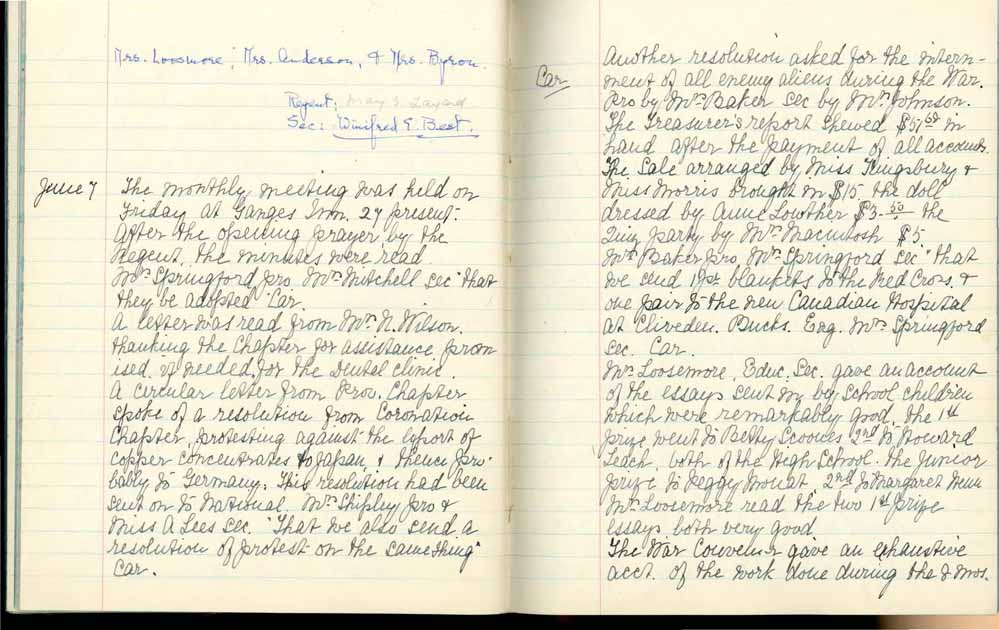 Mrs. Loosmore, Mrs. Anderson, & Mrs. Byron.
Regent; May S. Layard
Sec: Winifred E. Best.
June 7
The monthly meeting was held on
Friday at Ganges Inn. 27 present.
After the opening prayer by the
Regent, the minutes were read.
Mrs Springford pro. Mrs Mitchell sec "that
they be adopted" Car.
A letter was read from Mrs N. Wilson.
thanking the Chapter for assistance prom
ised, if needed, for the Dental clinic.
A circular letter from Prov. Chapter
spoke of a resolution from Coronation
Chapter, protesting against the export of
copper concentrates to Japan & thence pro-
bably to Germany. This resolution had been
sent on to National. Mrs Shipley pro &
Miss A Lees sec. "That we also send a
resolution of protest on the same thing"
Car.
Another resolution asked for the intern-
ment of all enemy aliens during the War.
Car
Pro by Mrs Baker sec by Mrs Johnson.
The Treasurer's report shewed in
hand after the payment of all accounts.
The Sale arranged by Miss Kingsbury &
Miss Morris brought in $15 the doll
dressed by Anne Lowther $3.50 the
party by Mrs Macintosh $5
Mrs Baker pro. Mrs Springford sec "that
we send 1 pr blankets to the Red Cross &
one pair to the new Canadian Hospital
at Cliveden. Bucks. Eng. Mrs Springford
sec. Car.
Mrs Loosemore, Educ. Sec. gave an account
of the essays sent in by school children
which were remarkably good. The 1st
prize went to Betty Scoones 2nd to Howard
Leach, both of the High School. The Junior
prize to Peggy Mouat 2nd to Margaret
Mrs Loosemore read the two 1st prize
essays both very good
The War Convener gave an exhaustive
acct. of the work done during the mos.